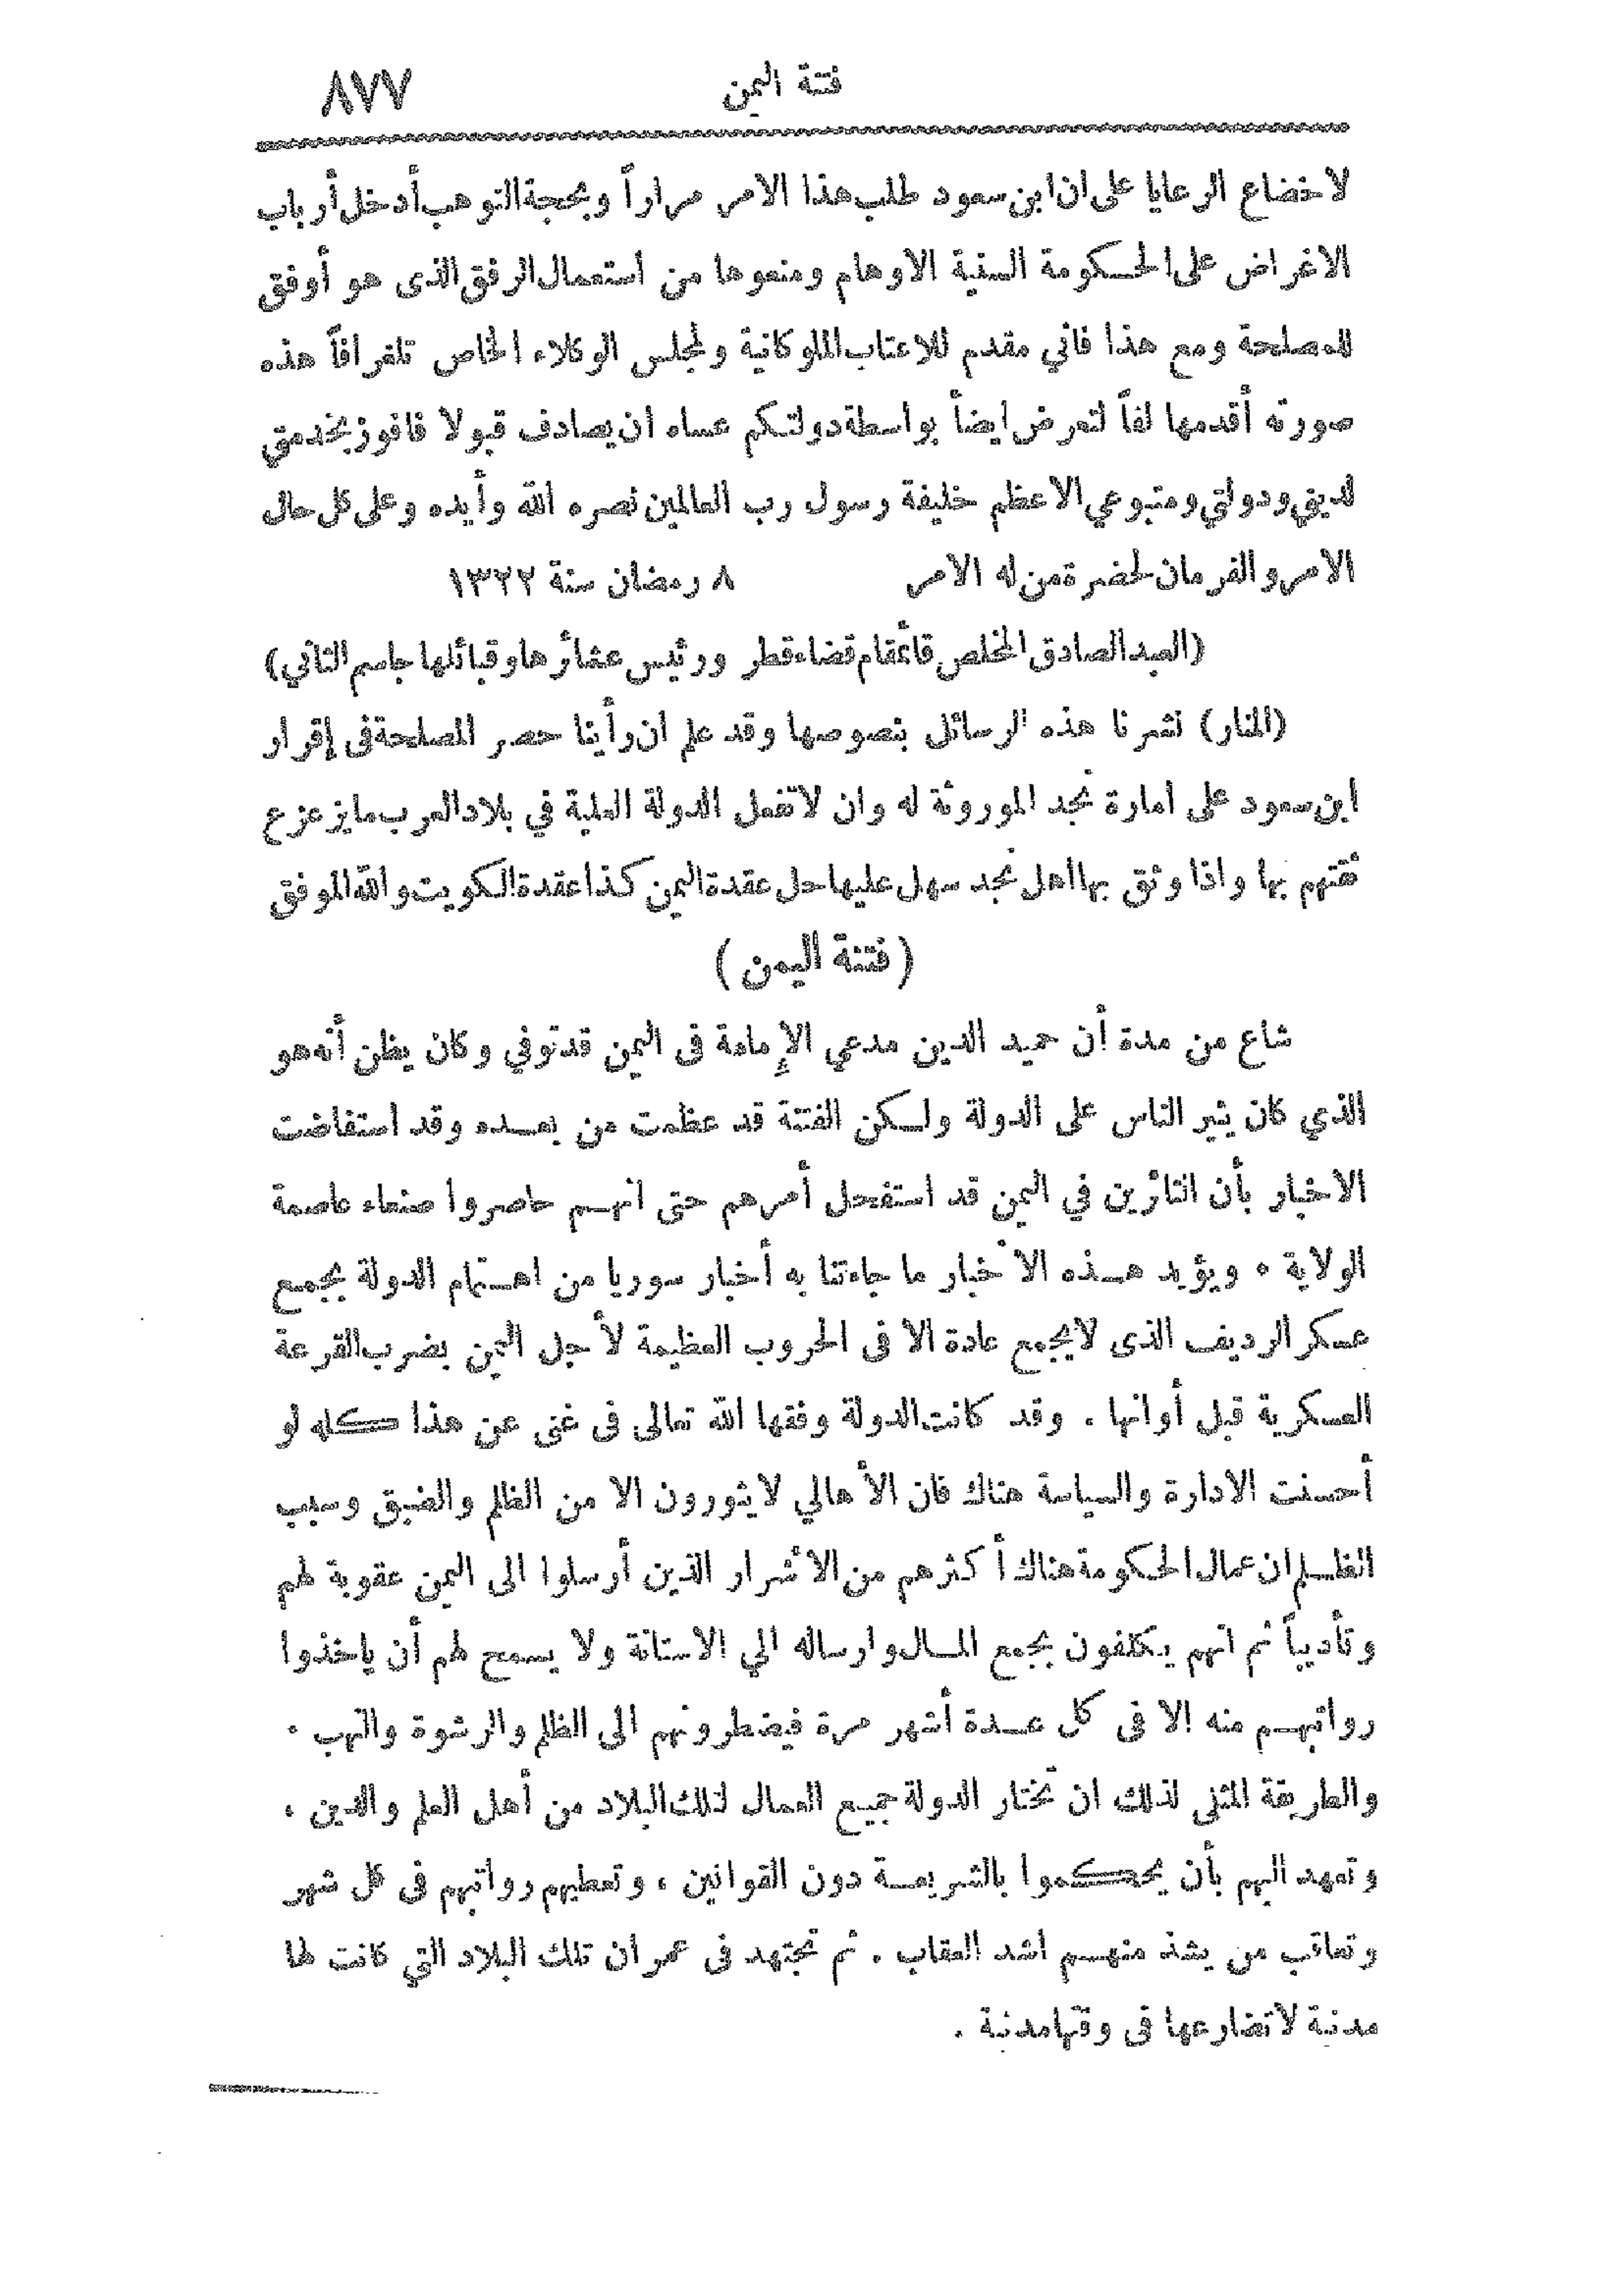 فتنة اليمن ٨٧٧
لاخضاع الرعايا على ان ابن سعود طلب هذا الامر مراراً وبحجة التوهب أدخل أرباب
الاغراض على الحكومة السنية الاوهام ومنعوها من استعمال الرفق الذى هو أوفق
للمصلحة ومع هذا فاني مقدم للاعتاب الملوكانية ولمجلس الوكلاء الخاص تلغرافاً هذه
صورته أقدمها لفاً لتعرض ايضاً بواسطة دولتكم عساه ان يصادف قبولا فافوز بخدمتي
لديني ودولتي ومتبوعي الاعظم خليفة رسول رب العالمين نصره الله وأيده وعلى كل حال
الامر والفرمان لحضرة من له الامر ٨ رمضان سنة ١٣٢٢
(العبد الصادق المخلص قائمقام قضاء قطر ورئيس عشائرها وقبائلها جاسم الثاني)
(المنار) نشرنا هذه الرسائل بنصوصها وقد علم ان رأينا حصر المصلحة فى إقرار
ابن سعود على امارة نجد الموروثة له وان لا تفعل الدولة العلية في بلاد العرب ما يزعزع
ثقتهم بها واذا وثق بها اهل نجد سهل عليها حل عقدة اليمن كذا عقدة الكويت والله الموفق
(فتنة اليمن)
شاع من مدة أن حميد الدين مدعي الإمامة فى اليمن قد توفي وكان يظن أنه هو
الذي كان يثير الناس على الدولة ولكن الفتنة قد عظمت من بعده وقد استفاضت
الاخبار بأن الثائرين في اليمن قد استفحل أمرهم حتى انهم حاصروا صنعاء عاصمة
الولاية . ويؤيد هذه الأخبار ما جاءتنا به أخبار سوريا من اهتمام الدولة بجمع
عسكر الرديف الذى لا يجمع عادة الا فى الحروب العظيمة لأجل اليمن بضرب القرعة
العسكرية قبل أوانها . وقد كانت الدولة وفقها الله تعالى فى غنى عن هذا كله لو
أحسنت الادارة والسياسة هناك فان الأهالي لا يثورون الا من الظلم والضيق وسبب
الظلم ان عمال الحكومة هناك أكثرهم من الأشرار الذين أرسلوا الى اليمن عقوبة لهم
وتأديباً ثم انهم يكلفون بجمع المال وارساله الي الاستانة ولا يسمح لهم أن يأخذوا
رواتبهم منه الا فى كل عدة أشهر مرة فيضطرونهم الى الظلم والرشوة والنهب .
والطريقة المثلى لذلك ان تختار الدولة جميع العمال لتلك البلاد من أهل العلم والدين ،
وتعهد اليهم بأن يحكموا بالشريعة دون القوانين ، وتعطيهم رواتبهم فى كل شهر
وتعاقب من يشذ منهم اشد العقاب . ثم تجتهد فى عمران تلك البلاد التي كانت لها
مدنية لا تضارعها فى وقتها مدنية .